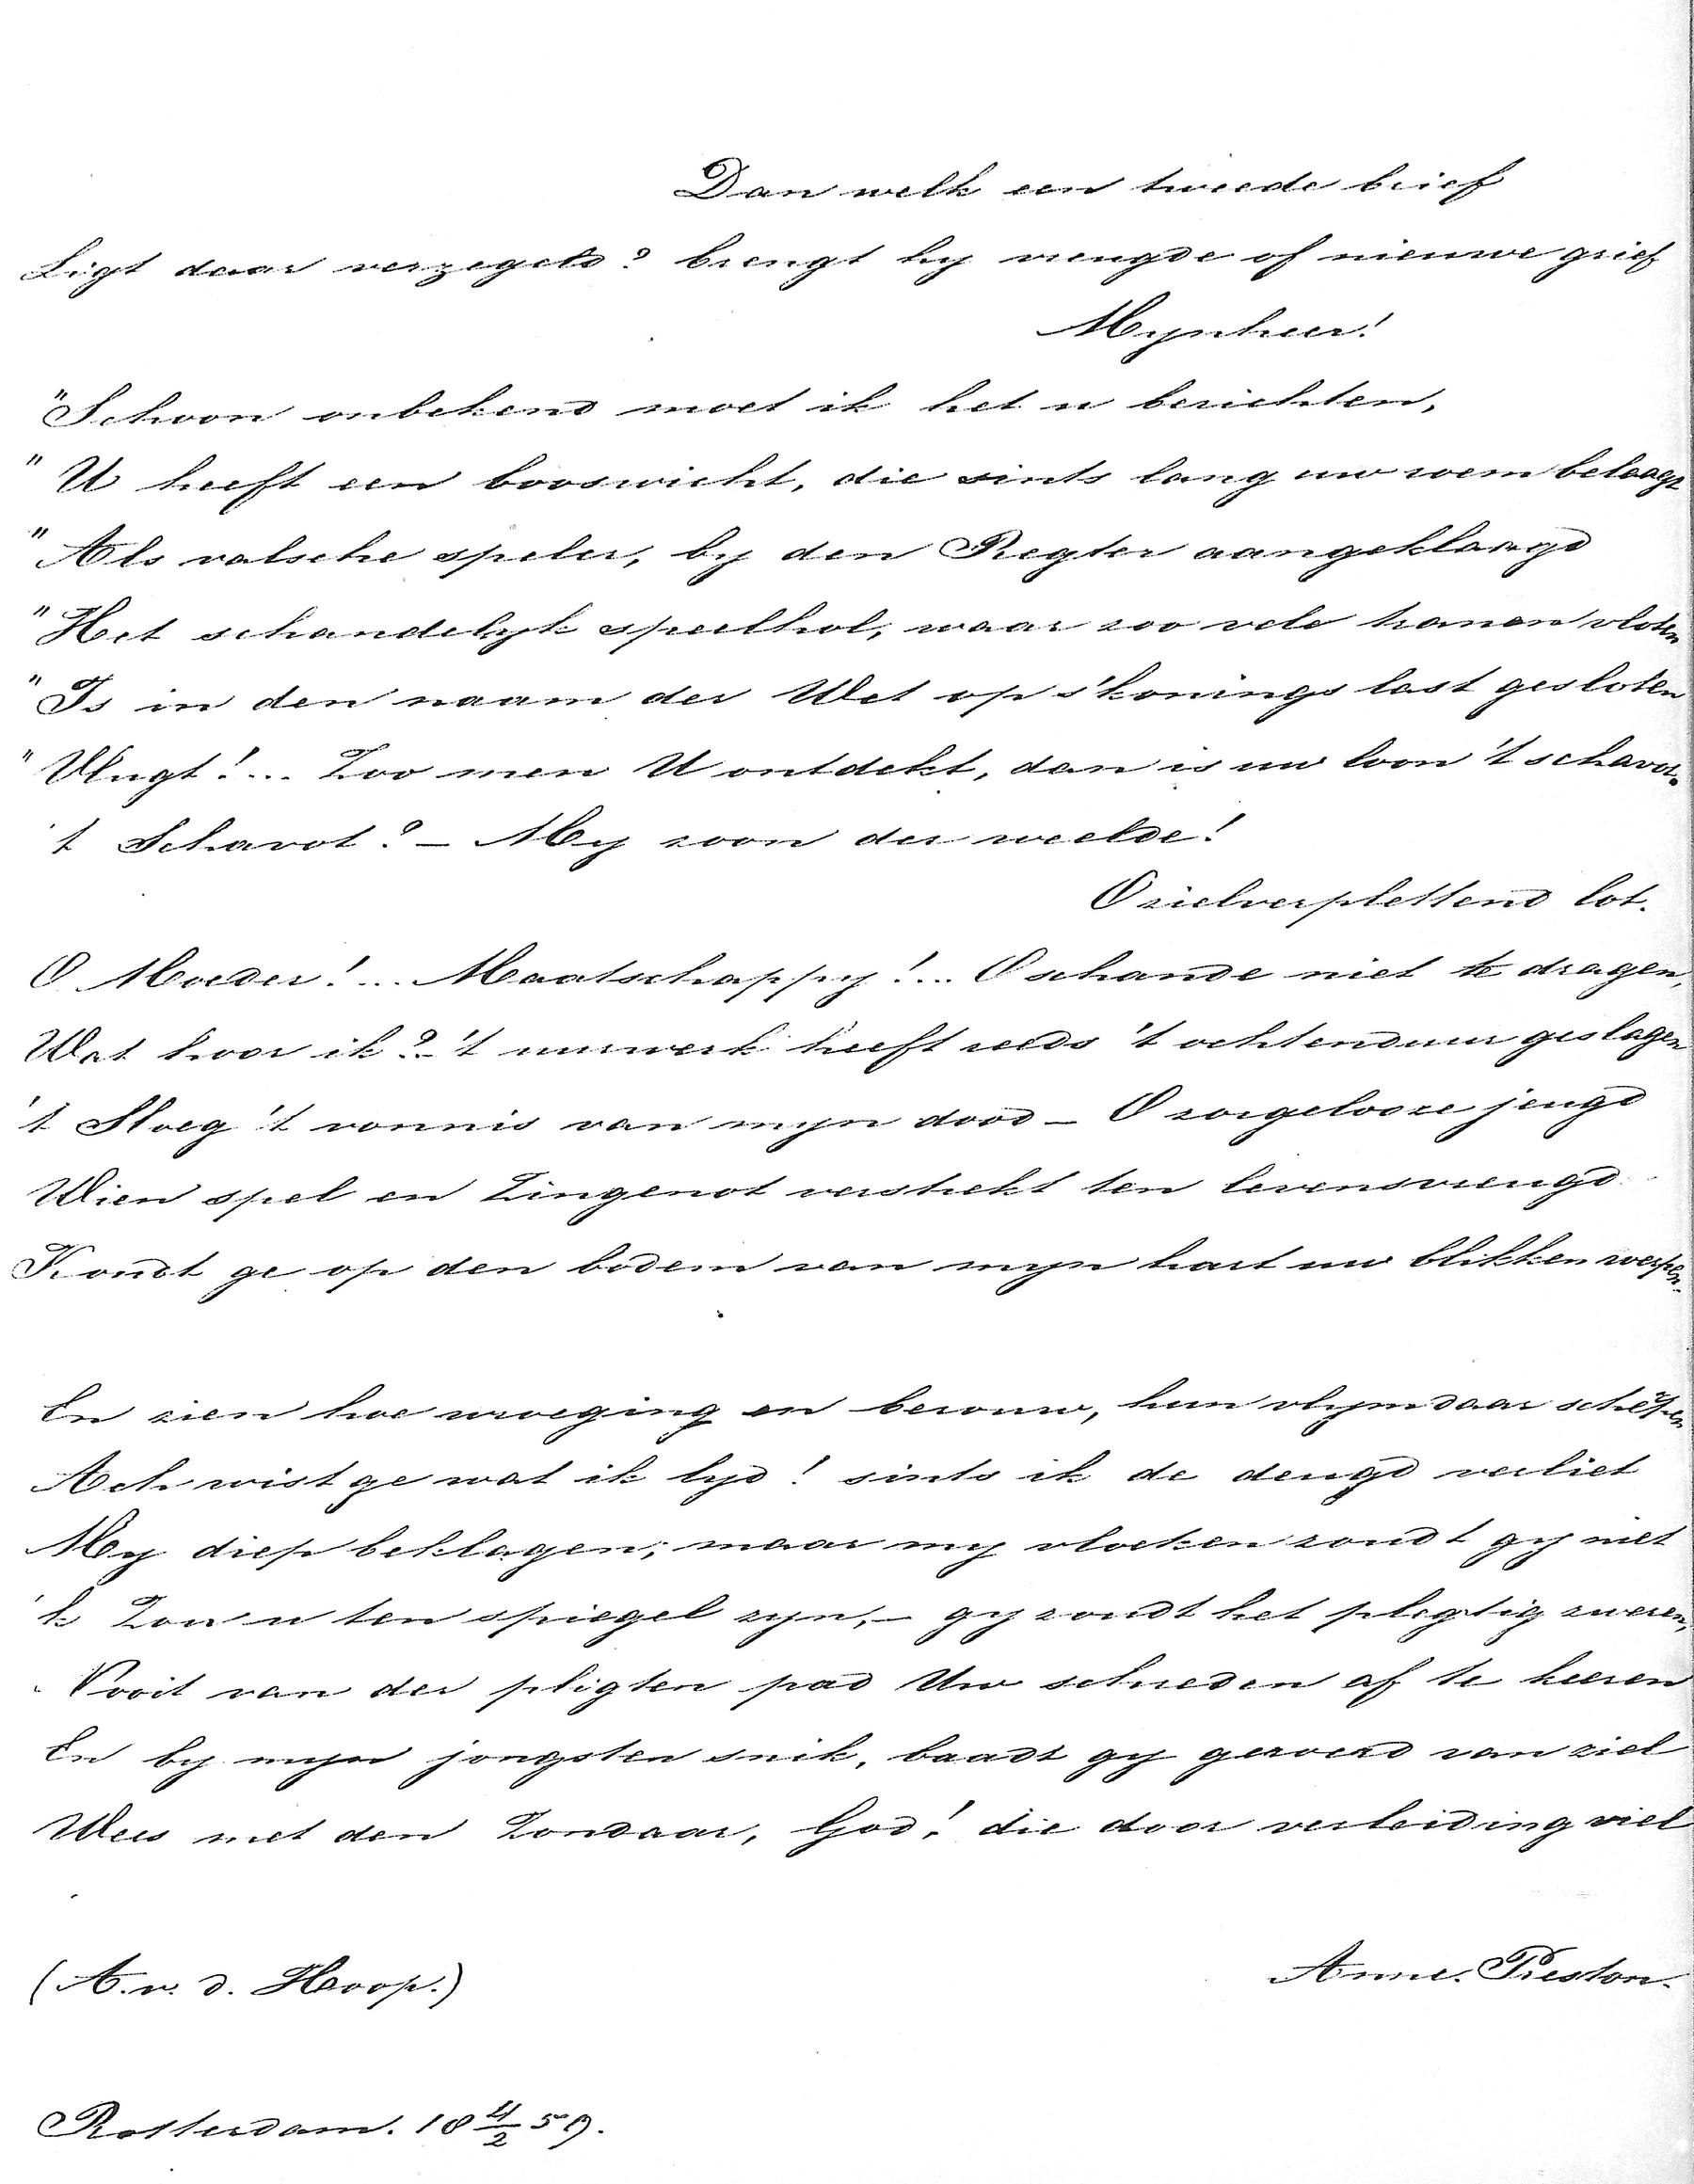 Dan welk een tweede brief
Ligt daar verzegeld? brengt hy vreugde of nieuwe grief
Mynheer!
"Schoon onbekend moet ik het u berichten,
"U heeft een booswicht, die sints lang uw roem belaagt
"Als valsche speler, by den Regter aangeklaagd
"Het schandelyk speelhol, waar zoo vele tranen vloten
"Is in den naam der Wet op s'konings last gesloten
"Vlugt!... Zoo men U ontdekt, dan is uw loon 't schavot.
't Schavot? – My zoon der weelde!
O zielverplettend lot.
O Moeder!... Maatschappy!... O schande niet te dragen,
Wat hoor ik? – 't uurwerk heeft reeds 't ochtenduur geslagen
't Sloeg 't vonnis van myn dood – O zorgelooze jeugd
Wien spel en Zingenot verstrekt ten levensvreugd
Kondt ge op den bodem van myn hart uw blikken werpen.
En zien hoe wroeging en berouw, hun vlym daar scherpen
Ach wist ge wat ik lyd! sints ik de deugd verliet
My diep beklagen; maar my vloeken zoudt gy niet
'k Zou u ten spiegel zyn, – gy zoudt het plegtig zweren,
Nooit van der pligten pad Uw schreden af te keeren
En by myn jongsten snik, baadt gy geroerd van ziel
Wees met den Zondaar, God! die door verleiding viel
(A. v. d. Hoop.)
Anne. Preston.
Rotterdam. 18 4/2 59.